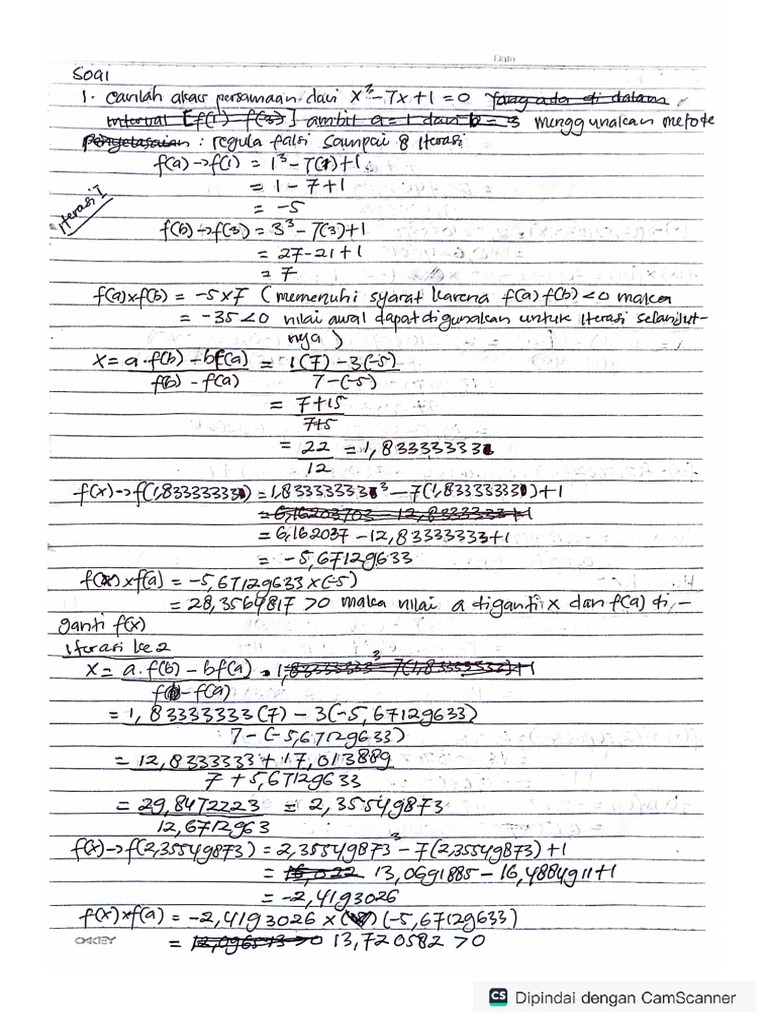 Date
Soal
1. Carilah akar persamaan dari x³ - 7x + 1 = 0 yang ada di dalam
interval [f(1) f(3)] ambil a = 1 dan b = 3 menggunakan metode
penyelasaian : regula falsi sampai 8 iterasi
f(a) → f(1) = 1³ - 7(1) + 1
= 1 - 7 + 1
= -5
Iterasi 1
f(b) → f(3) = 3³ - 7(3) + 1
= 27 - 21 + 1
= 7
f(a) x f(b) = -5 x 7 (memenuhi syarat karena f(a) f(b) < 0 maka
= -35 < 0 nilai awal dapat digunakan untuk iterasi selanjut-
nya)
x = a . f(b) - bf(a) = 1(7) - 3(-5)
f(b) - f(a) 7 - (-5)
= 7 + 15
7+5
= 22 = 1,83333333
12
f(x) → f(1,83333333) = 1,83333333³ - 7(1,83333333) + 1
= 6,16203703 - 12,8333333 + 1
= 6,162037 - 12,83333333 + 1
= -5,67129633
f(x) x f(a) = -5,67129633 x (-5)
= 28,3564817 > 0 maka nilai a diganti x dan f(a) di, -
ganti f(x)
iterasi ke 2
x = a . f(b) - bf(a) = 1,83333333³ - 7(1,83333333) + 1
f(b) - f(a)
= 1,83333333 (7) - 3(-5,67129633)
7 - (-5,67129633)
= 12,8333333 + 17,0138889
7 + 5,67129633
= 29,8472223 = 2,35549873
12,6712963
f(x) → f(2,35549873) = 2,35549873³ - 7(2,35549873) + 1
= 13,0691885 - 16,4884911 + 1
= -2,4193026
f(x) x f(a) = -2,4193026 x (-5,67129633)
= 12,096513 > 0 13,720582 > 0
OKEY
CS Dipindai dengan CamScanner